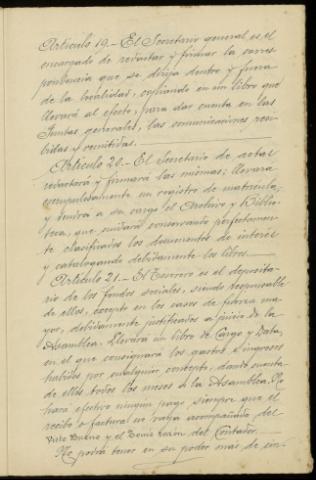 Artículo 19.- El Secretario general es el
encargado de redactar y firmar la corres
pondencia que se dirija dentro y fuera
de la localidad, copiando en un libro que
llevará al efecto, para dar cuenta en las
Juntas generales, las comunicaciones reci-
bidas y remitidas.
Artículo 20.- El Secretario de actas
redactará y firmará las mismas; llevará
escrupulosamente un registro de matrícula,
y tendrá a su cargo el Archivo y Biblio-
teca, que cuidará conservando perfectamen-
te clasificados los documentos de interés
y catalogando debidamente los libros.
Artículo 21.- El Tesorero es el deposita-
rio de los fondos sociales, siendo responsable
de ellos, excepto en los casos de fuerza ma-
yor, debidamente justificados a juicio de la
Asamblea. Llevará un libro de Cargo y Data,
en el que consignará los gastos e ingresos
habidos por cualquier concepto, dando cuenta
de ellos todos los meses a la Asamblea. No
hará efectivo ningún pago siempre que el
recibo o factural no vaya acompañada del
Visto Bueno y el Tomé razón del Contador.
No podrá tener en su poder más de cin-